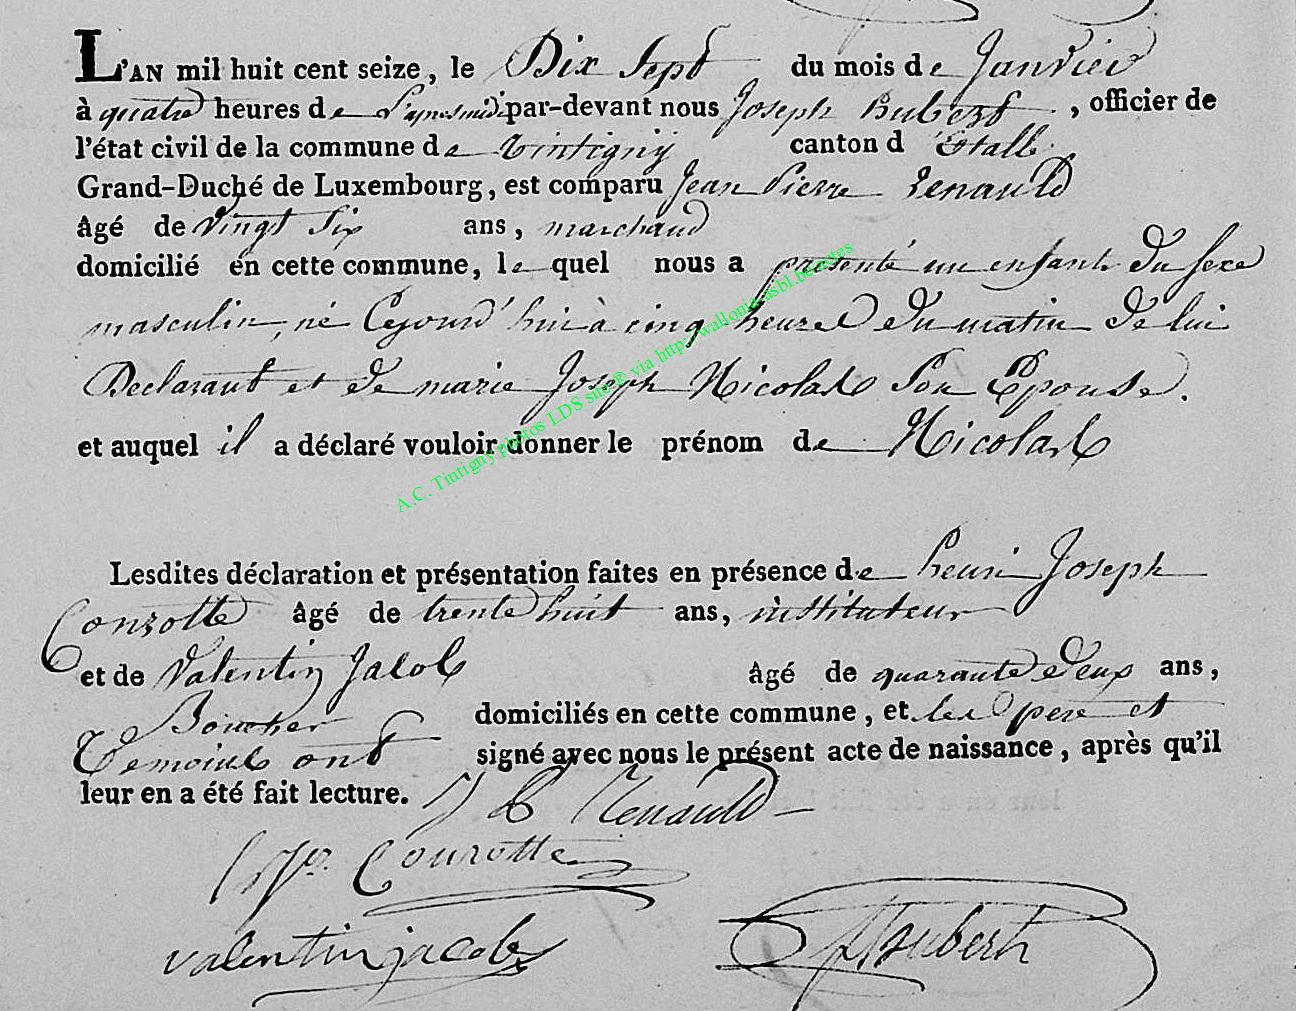 L'AN mil huit cent seize, le Dix Sept du mois de Janvier
à quatre heures de L'apresmidi par-devant nous Joseph hubert, officier de
l'état civil de la commune de tintigny canton d'Etalle
Grand-Duché de Luxembourg, est comparu Jean Pierre Renauld
âgé de vingt Six ans, marchand
domicilié en cette commune, le quel nous a présenté un enfant Du Sexe
masculin, né Cejourd'hui à cinq heures Du matin De lui
Declarant et De marie Joseph Nicolas Son Epouse.
et auquel il a déclaré vouloir donner le prénom de Nicolas
Lesdites déclaration et présentation faites en présence de henri Joseph
Conrotte âgé de trente huit ans, instituteur
et de Valentin Jacob âgé de quarante Deux ans,
Boucher domiciliés en cette commune, et les pere et
Temoins ont signé avec nous le présent acte de naissance, après qu'il
leur en a été fait lecture. J P Renauld
Conrotte
valentin jacob hubert
A.C. Tintigny photos LDS site© via http://wallonia-asbl.be/astas